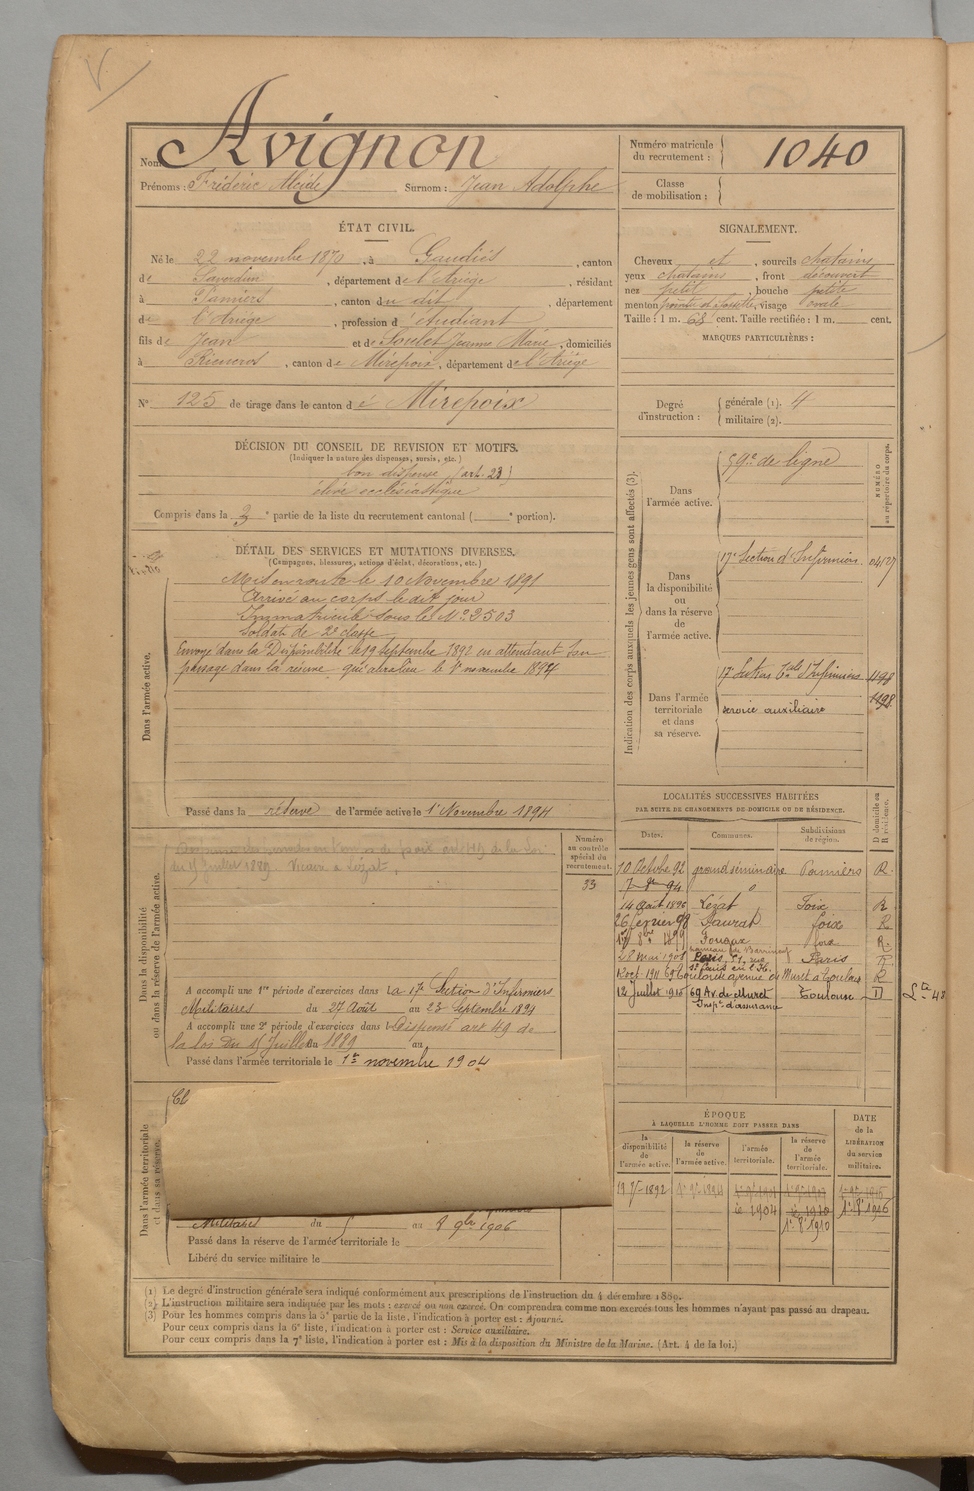 Nom Avignon
Prénoms : Frédéric Alcide Surnom : Jean Adolphe
Numéro matricule du recrutement : 1040
Classe de mobilisation :
ÉTAT CIVIL.
Né le 22 novembre 1870, à Gaudiès, canton
de Saverdun, département de l'Ariège, résidant
à Pamiers, canton du dit, département
de l'Ariège, profession d'étudiant
fils de Jean et de Soulet Jeanne Marie, domiciliés
à Rieucros, canton de Mirepoix, département de l'Ariège
N° 125 de tirage dans le canton de Mirepoix
SIGNALEMENT.
Cheveux et, sourcils chatains
yeux chatains, front découvert
nez petit, bouche petite
menton pointu et fossette, visage ovale
Taille : 1 m. 68 cent. Taille rectifiée : 1 m. cent.
MARQUES PARTICULIÈRES :
Degré d'instruction : générale (1). 4
militaire (2).
DÉCISION DU CONSEIL DE REVISION ET MOTIFS.
(Indiquer la nature des dispenses, sursis, etc.)
bon dispensé (art. 23)
élève ecclésiastique
Compris dans la 3e partie de la liste du recrutement cantonal ( e portion).
DÉTAIL DES SERVICES ET MUTATIONS DIVERSES.
(Campagnes, blessures, actions d'éclat, décorations, etc.)
Dans l'armée active.
Mis en route le 10 Novembre 1891
Arrivé au corps le dit jour
Immatriculé sous le N° 2503
Soldat de 2e classe
Envoyé dans la Disponibilité le 19 septembre 1892 en attendant son
passage dans la réserve qui aura lieu le 1r novembre 1894
Passé dans la réserve de l'armée active le 1r Novembre 1894
Indication des corps auxquels les jeunes gens sont affectés (3).
NUMÉRO au répertoire du corps.
Dans l'armée active.
59e de ligne
Dans la disponibilité ou dans la réserve de l'armée active.
17e Section d'Infirmiers
Dans l'armée territoriale et dans sa réserve.
17e Section d'Infirmiers
service auxiliaire
LOCALITÉS SUCCESSIVES HABITÉES
PAR SUITE DE CHANGEMENTS DE DOMICILE OU DE RÉSIDENCE.
D domicile ou R résidence.
Dates. Communes. Subdivisions de région.
10 Octobre 92 grand séminaire Pamiers R.
14 Août 1896 Lézat Foix R
26 février 98 Saurat foix R
1899 foix R.
28 mai 1908 Paris Paris R
12 juillet 1910 69 Av. de Muret Toulouse D
Insp. d'assurance
Dans la disponibilité ou dans la réserve de l'armée active.
Numéro au contrôle spécial du recrutement.
33
du 15 Juillet 1889. Vicaire à Lézat.
A accompli une 1re période d'exercices dans la 17e Section d'Infirmiers
Militaires du 27 Août au 23 septembre 1894
A accompli une 2e période d'exercices dans l Dispensé art 49 de
la loi du 15 Juillet 1889 au
Passé dans l'armée territoriale le 1er novembre 1904
Dans l'armée territoriale et dans sa réserve.
Militaires du au 8 9bre 1906
Passé dans la réserve de l'armée territoriale le
Libéré du service militaire le
ÉPOQUE
À LAQUELLE L'HOMME DOIT PASSER DANS
la disponibilité de l'armée active. la réserve de l'armée active. l'armée territoriale. la réserve de l'armée territoriale.
DATE de la LIBÉRATION du service militaire.
(1) Le degré d'instruction générale sera indiqué conformément aux prescriptions de l'instruction du 4 décembre 1889.
(2) L'instruction militaire sera indiquée par les mots : exercé ou non exercé. On comprendra comme non exercés tous les hommes n'ayant pas passé au drapeau.
(3) Pour les hommes compris dans la 5e partie de la liste, l'indication à porter est : Ajourné.
Pour ceux compris dans la 6e liste, l'indication à porter est : Service auxiliaire.
Pour ceux compris dans la 7e liste, l'indication à porter est : Mis à la disposition du Ministre de la Marine. (Art. 4 de la loi.)